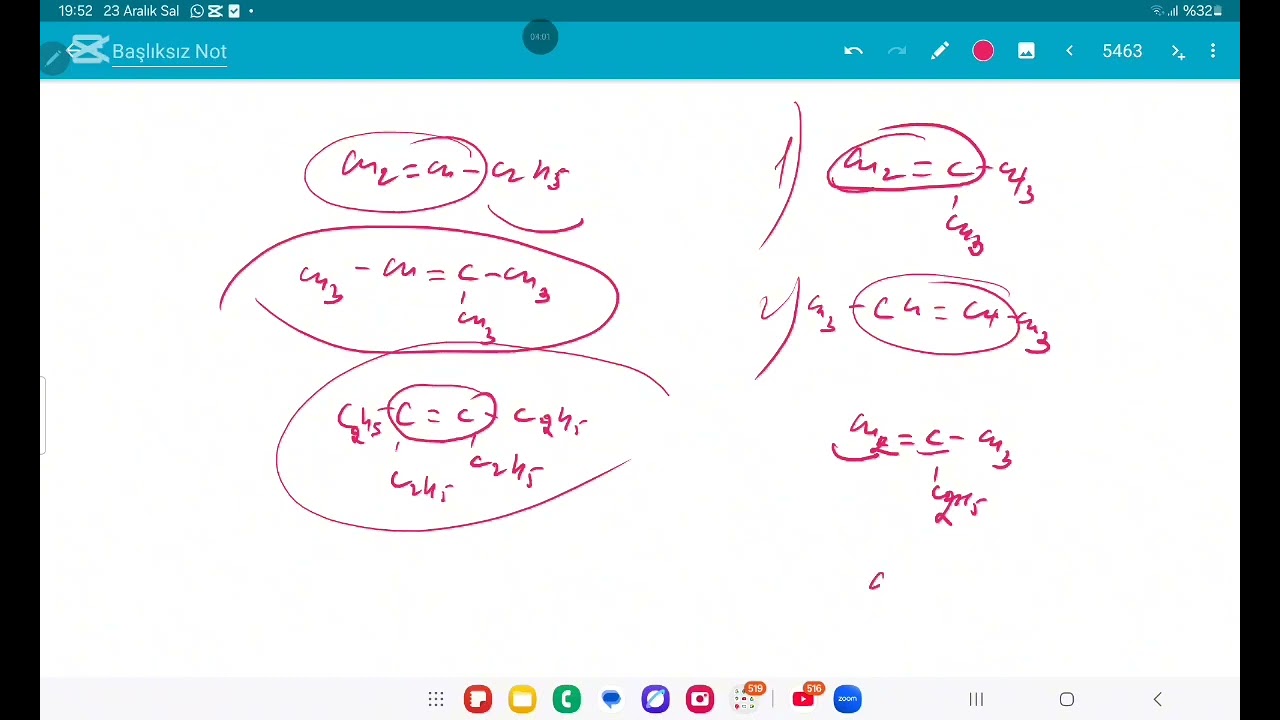 19:52 23 Aralık Sal %32
04:01
Başlıksız Not 5463
CH2=CH-C2H5
CH3-CH=C-CH3
CH3
C2H5-C=C-C2H5
C2H5 C2H5
1) CH2=C-CH3
CH3
2) CH3-CH=CH-CH3
CH2=C-CH3
C2H5
C
519 516 zoom